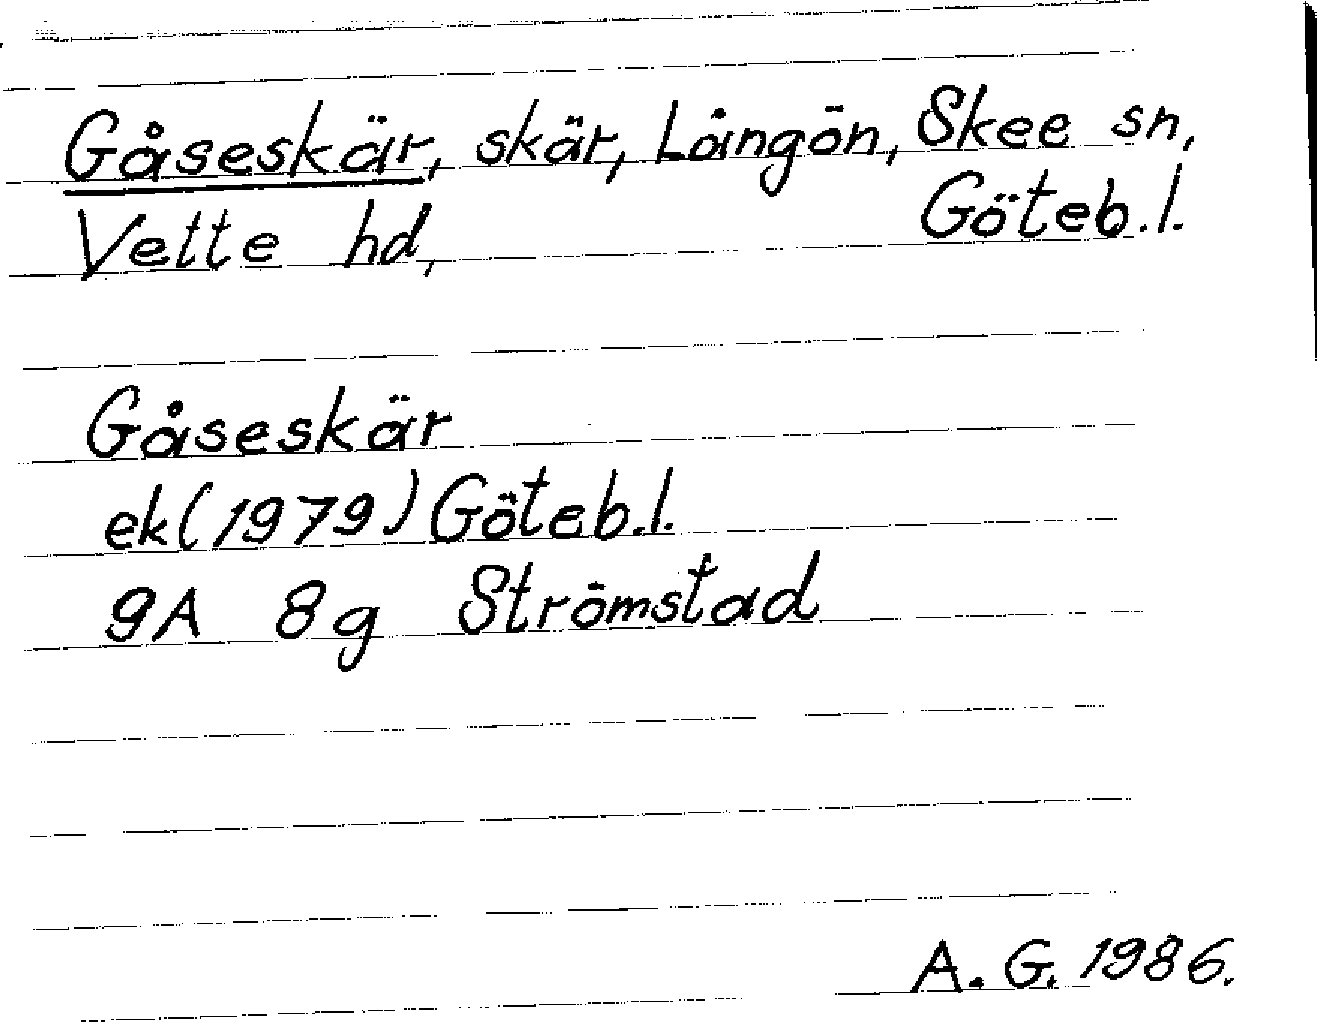 Gåseskär, skär, Långön, Skee sn,
Vette hd, Göteb.l.
Gåseskär
ek(1979) Göteb.l.
9A 8g Strömstad
A. G. 1986.